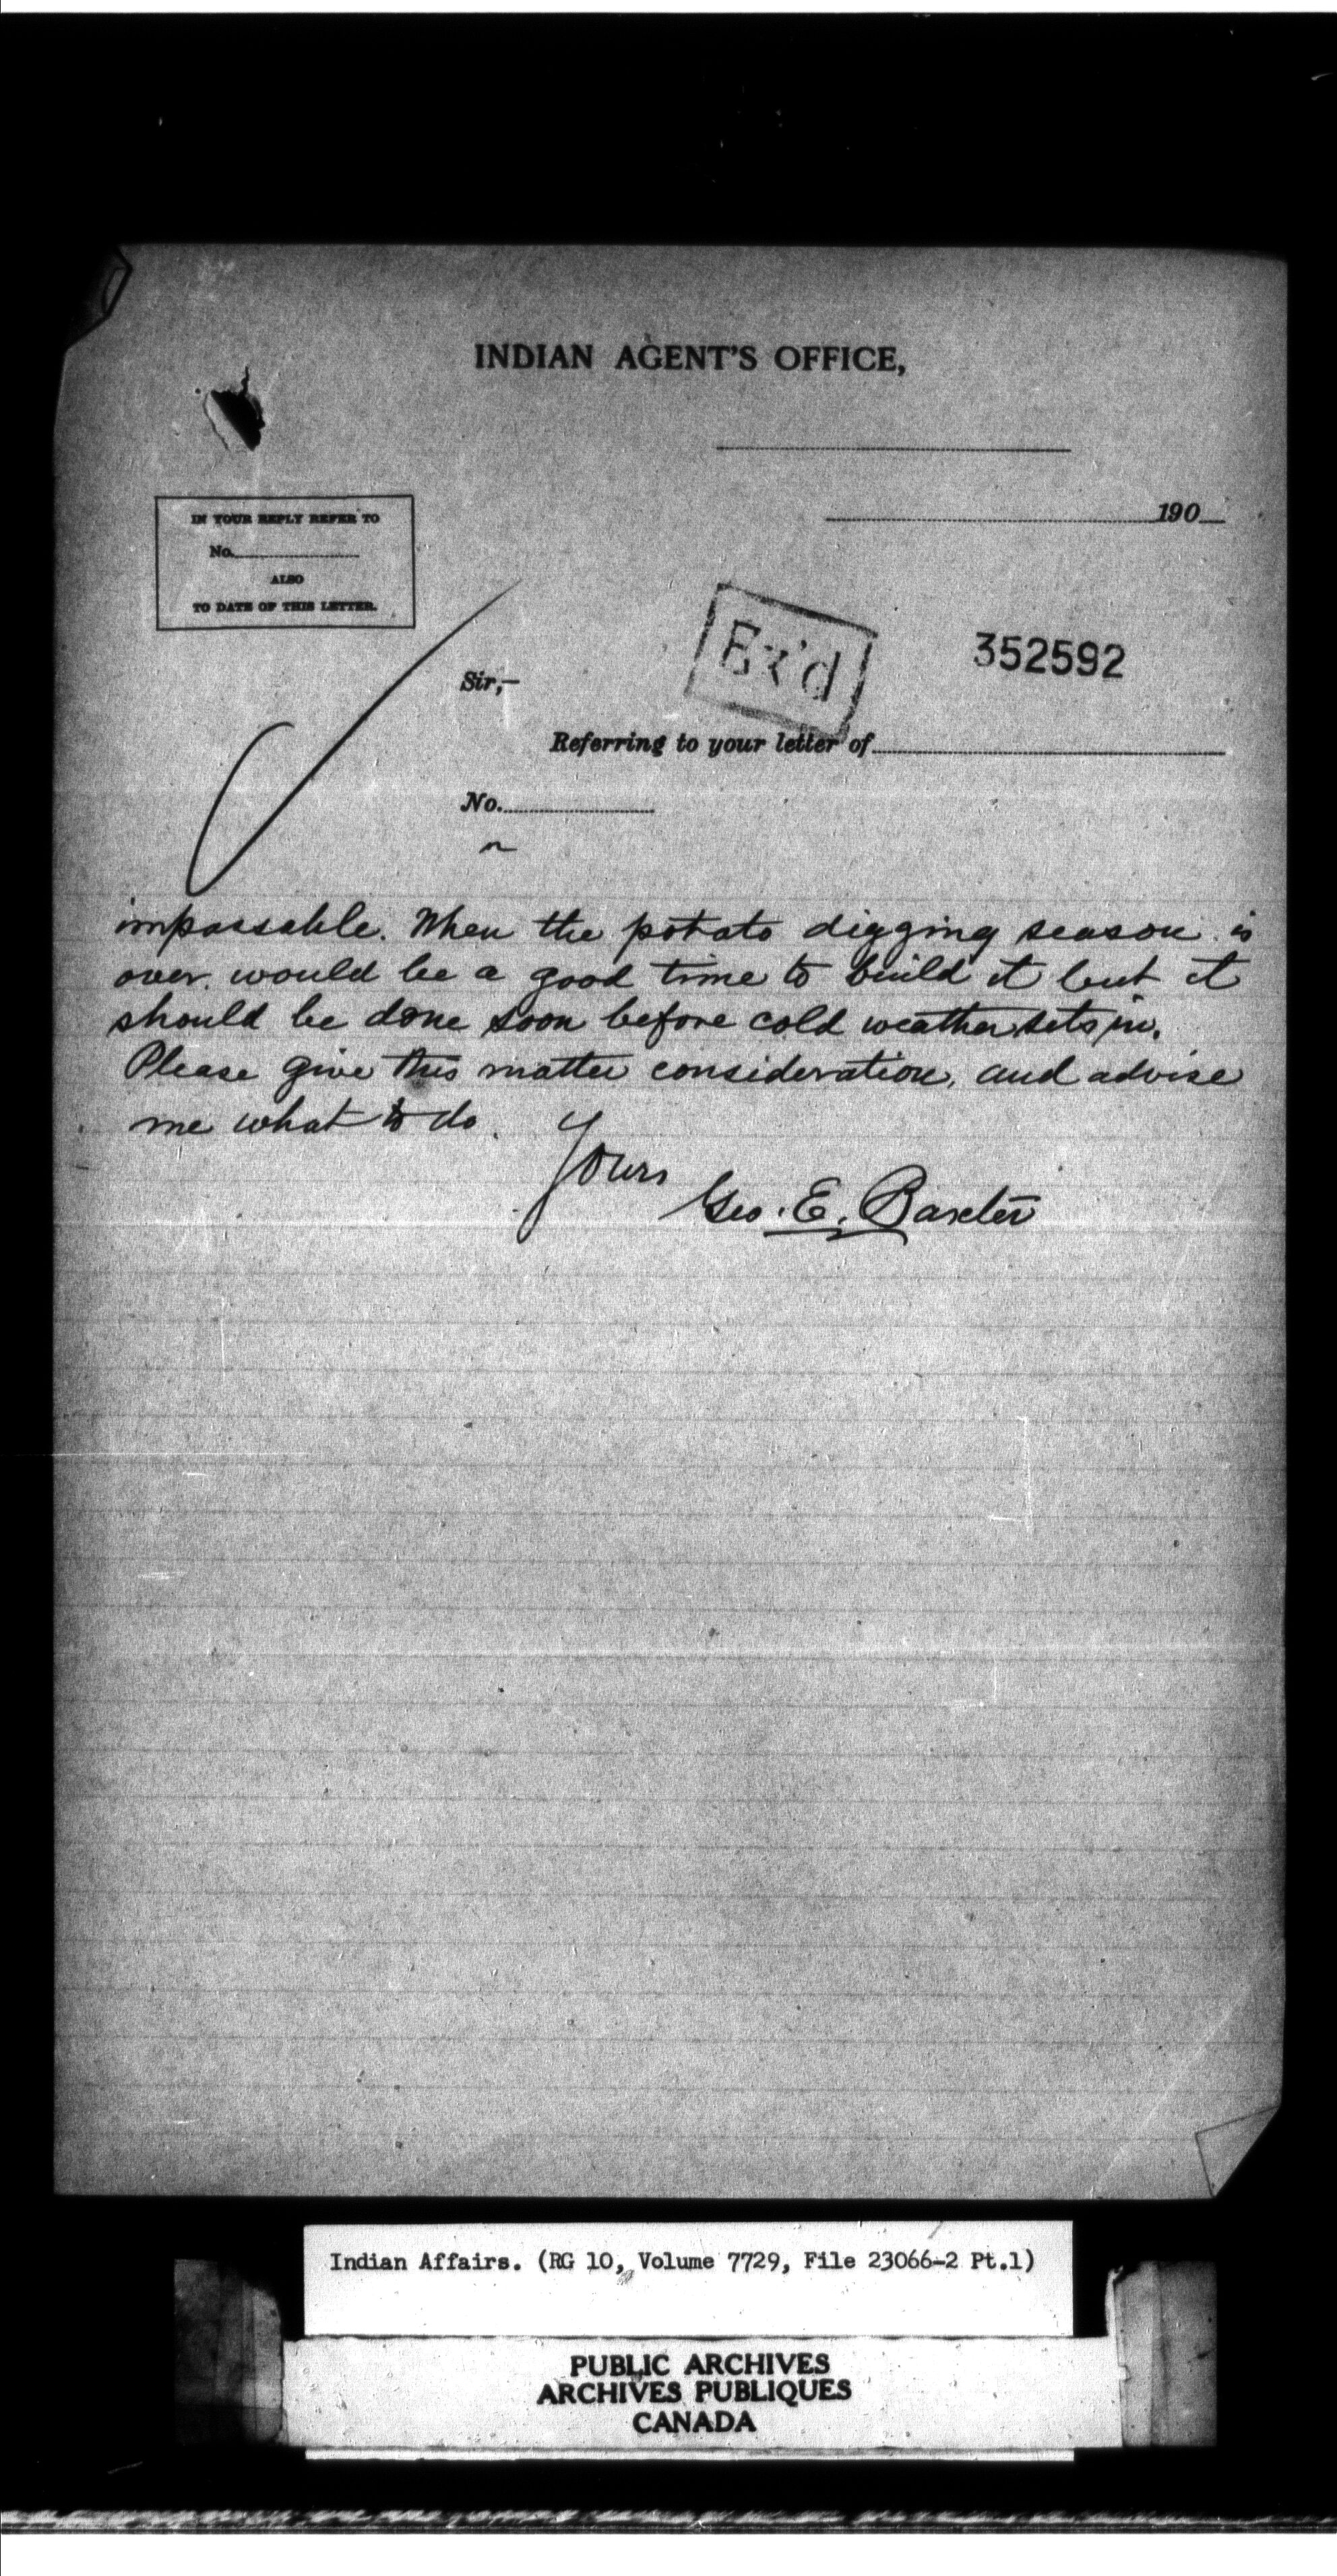 INDIAN AGENT'S OFFICE,
190
IN YOUR REPLY REFER TO
No.
ALSO
TO DATE OF THIS LETTER.
Ex'd
352592
Sir,—
Referring to your letter of
No.
impassable. When the potato digging season is
over. would be a good time to build it but it
should be done soon before cold weather sets in.
Please give this matter consideration, and advise
me what to do.
Yours
Geo. E. Baxter
Indian Affairs. (RG 10, Volume 7729, File 23066-2 Pt.1)
PUBLIC ARCHIVES
ARCHIVES PUBLIQUES
CANADA